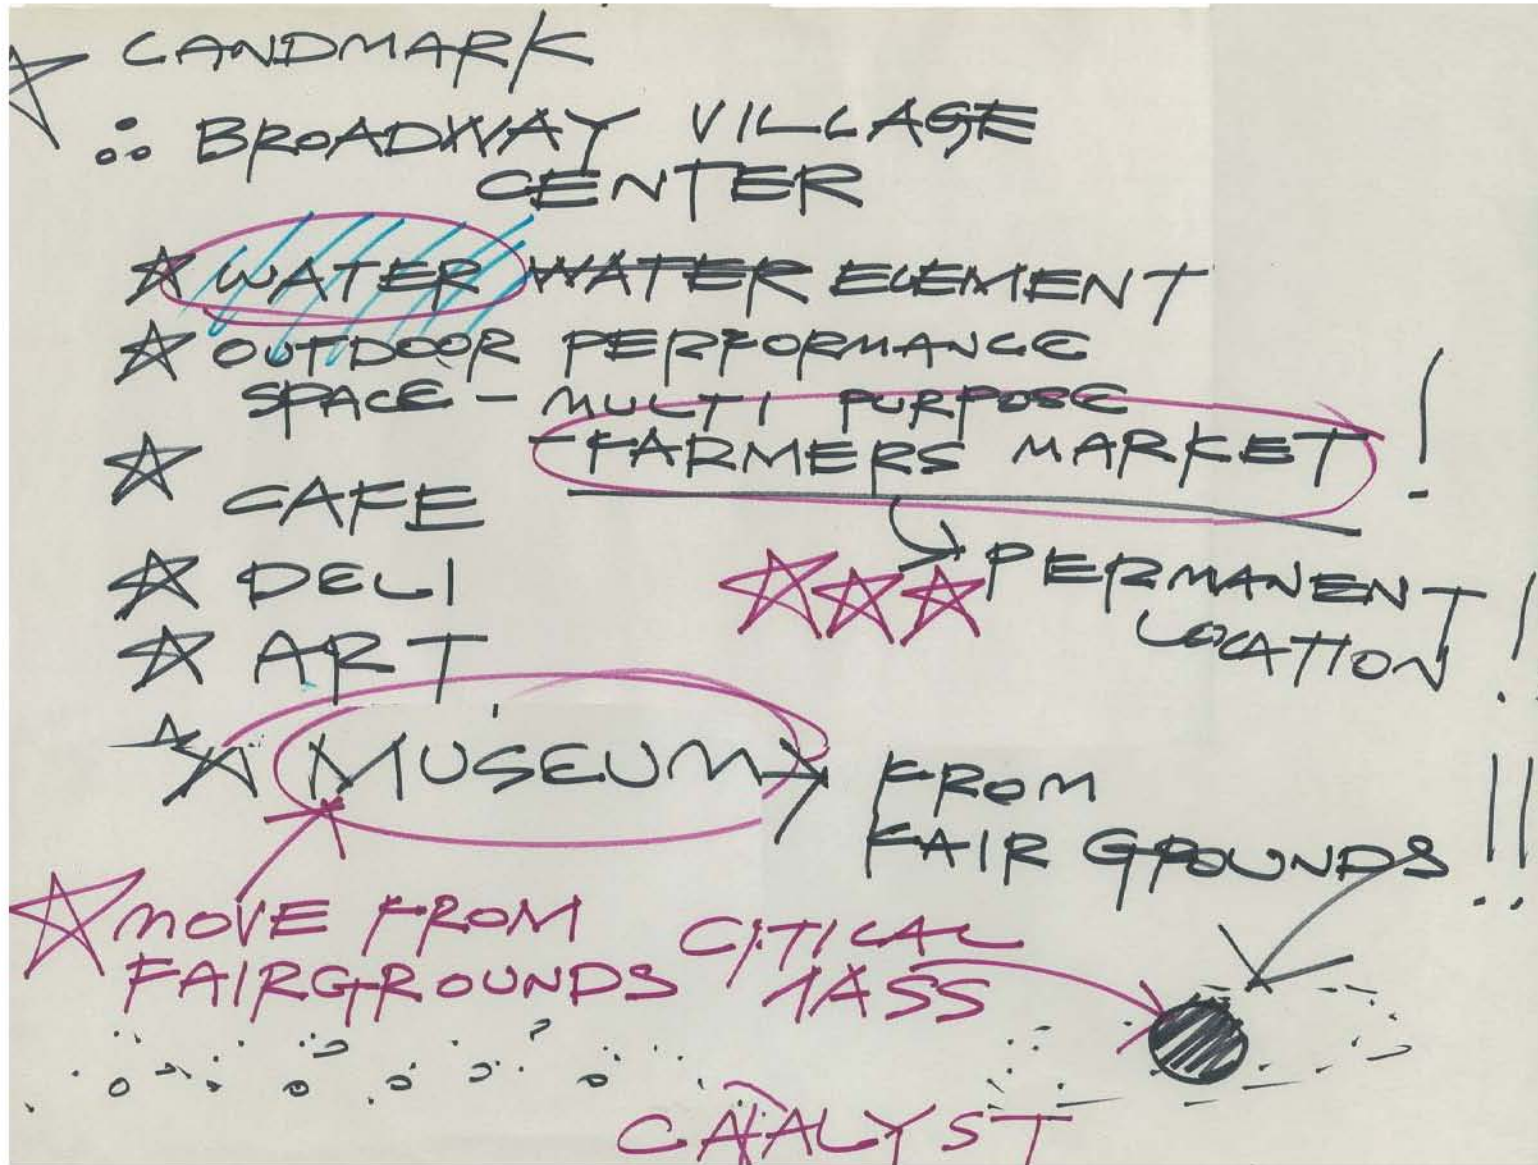 LANDMARK
∴ BROADWAY VILLAGE
CENTER
☆ WATER WATER ELEMENT
☆ OUTDOOR PERFORMANCE
SPACE - MULTI PURPOSE
- FARMERS MARKET !
☆ CAFE
→ PERMANENT
LOCATION !
☆ DELI
☆ ART
☆ MUSEUM → FROM
FAIR GROUNDS !!
☆ MOVE FROM
FAIRGROUNDS
CITICAL
MASS
CATALYST